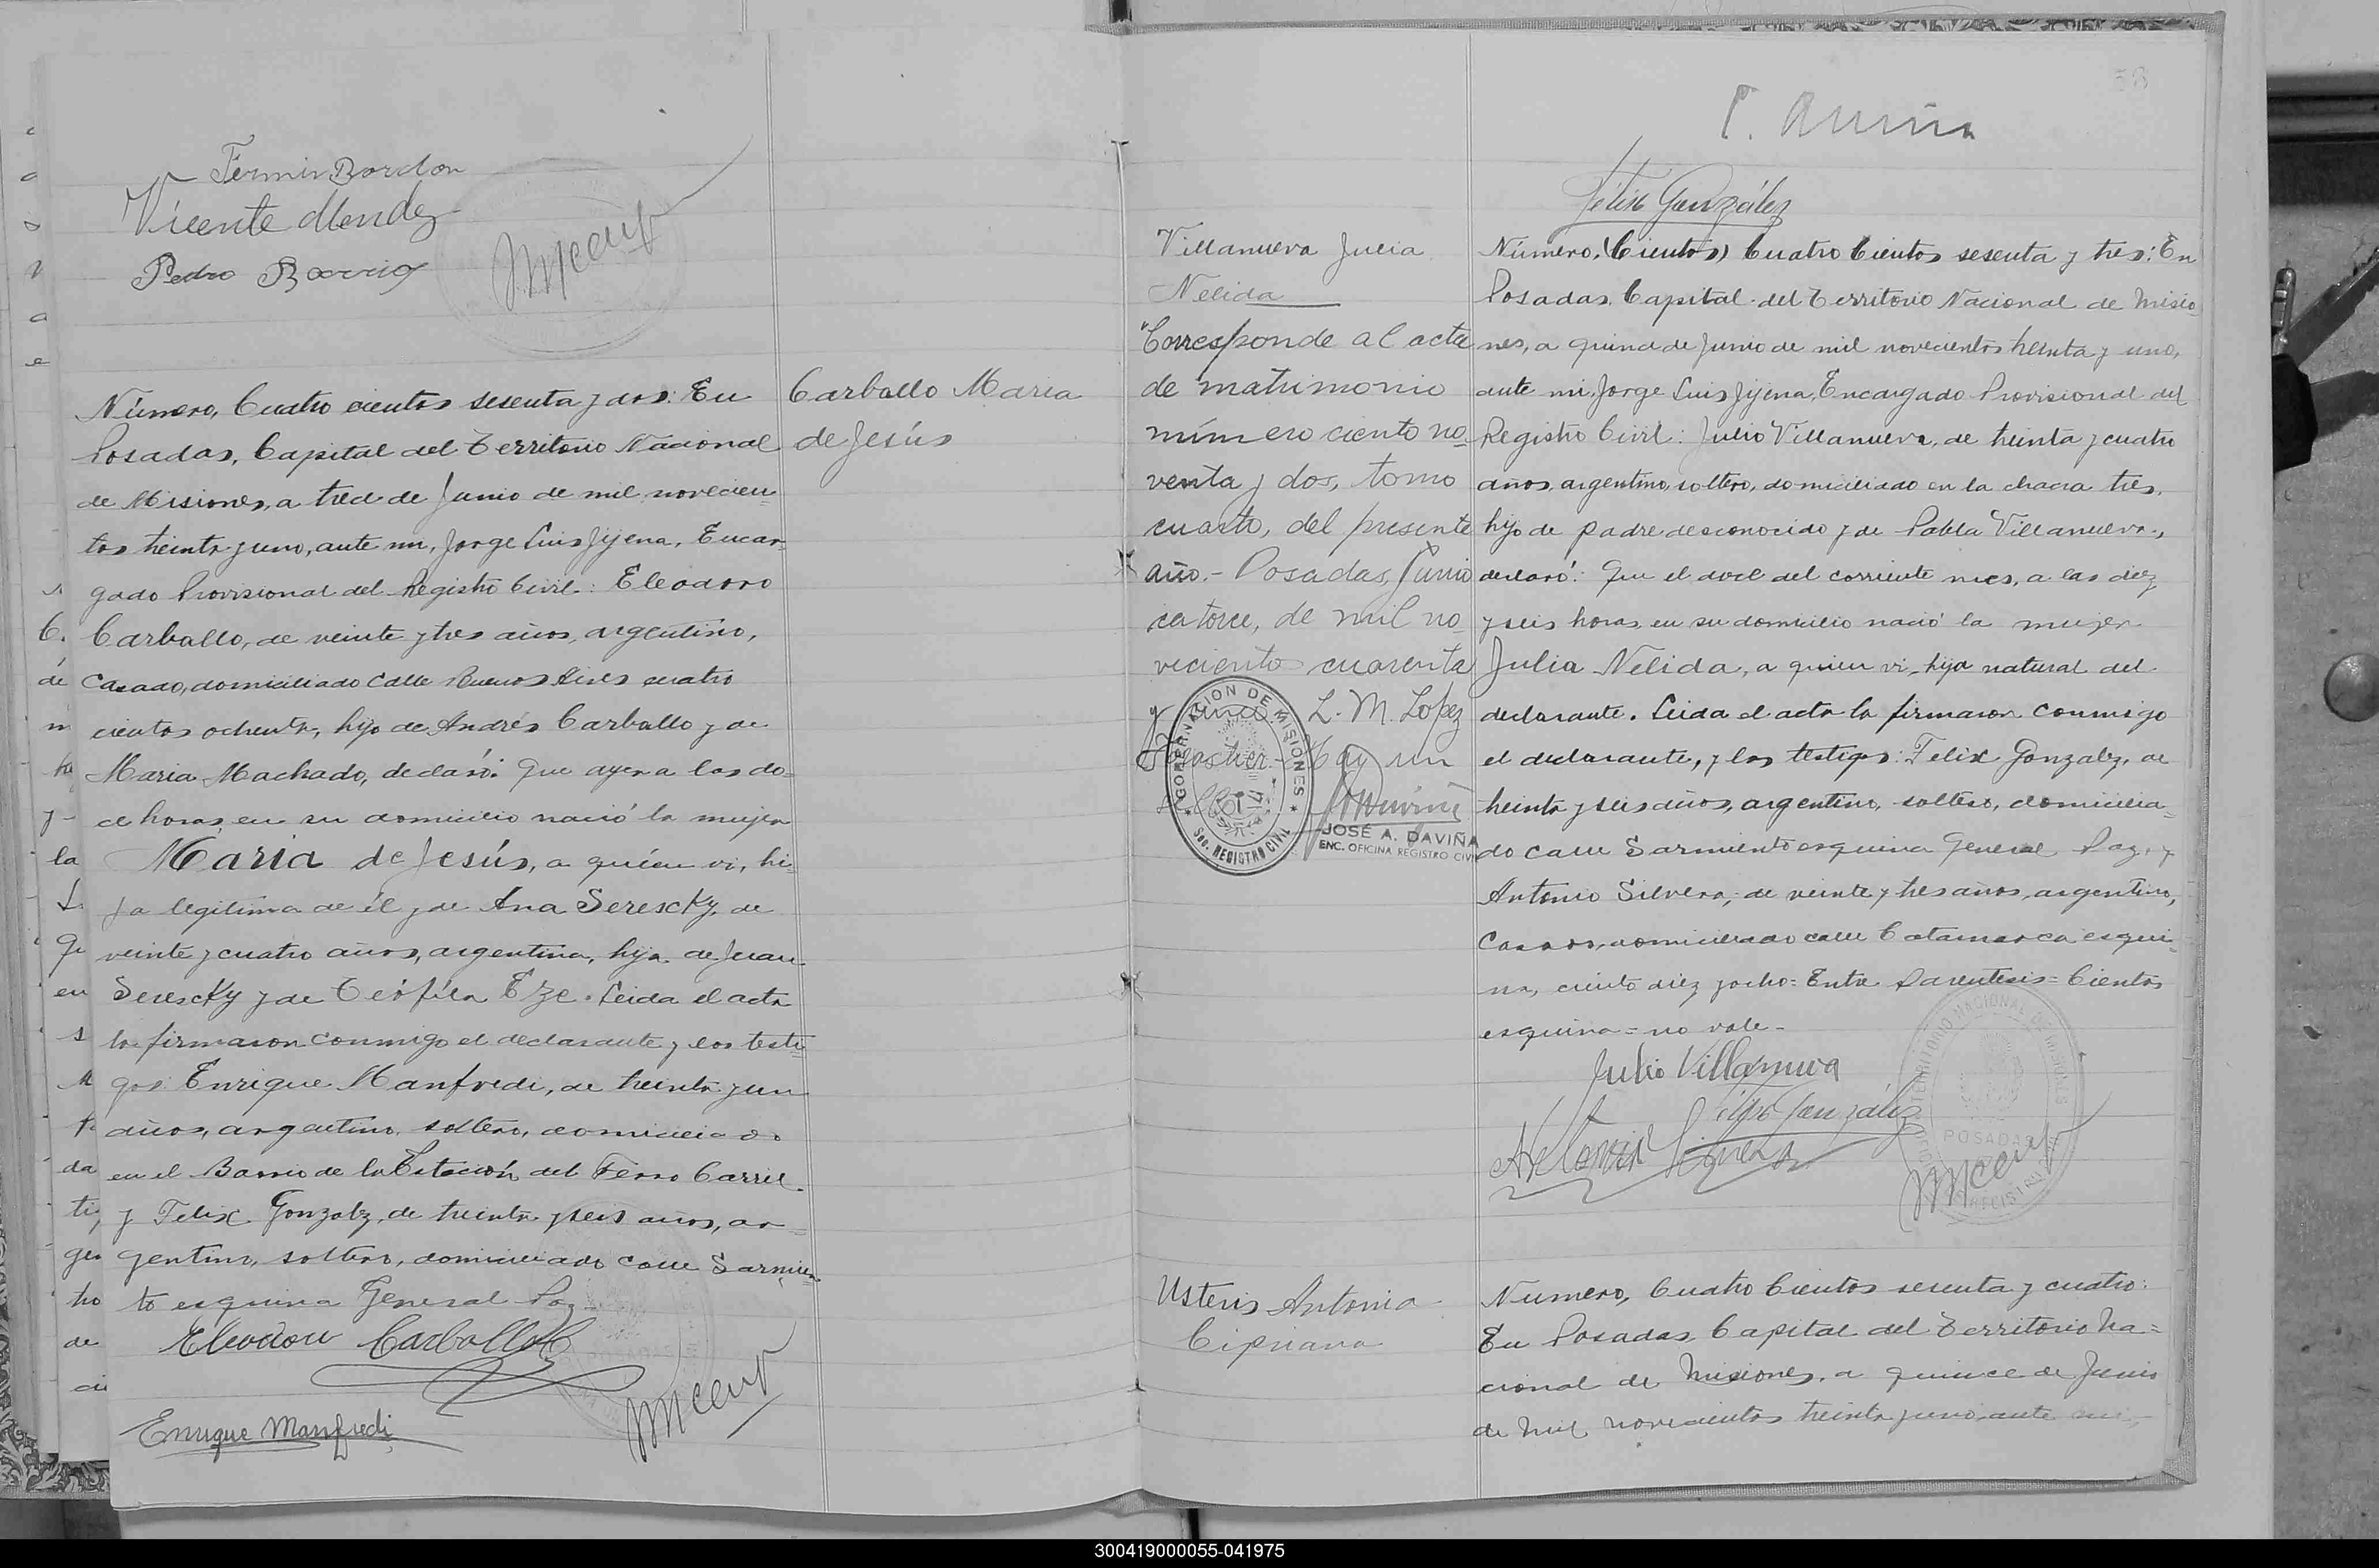 Fermin Bordon
Vicente Mendez
Pedro Barrios
Número, Cuatro cientos sesenta y dos: En
Posadas, Capital del Territorio Nacional
de Misiones, a trece de Junio de mil novecien
tos treinta y uno, ante mi, Jorge Luis Jijena, Encar
gado Provisional del Registro Civil: Eleodoro
Carballo, de veinte y tres años, argentino,
casado, domiciliado calle Buenos Aires cuatro
cientos ochenta, hijo de Andrés Carballo y de
Maria Machado, declaró: Que ayer a las do-
ce horas, en su domicilio nació la mujer
Maria de Jesús, a quien vi, hi-
ja legitima de él y de Ana Serescky, de
veinte y cuatro años, argentina, hija de Juan
Serescky y de Teófila Eze. Leida el acta
la firmaron conmigo el declarante y los testi
gos: Enrique Manfredi, de treinta y un
años, argentino, soltero, domiciliado
en el Barrio de la Estación del Ferro Carril
y Felix Gonzalez, de treinta y seis años, ar-
gentino, soltero, domiciliado calle Sarmien
to esquina General Paz
Eleodoro Carballo
Enrique Manfredi
Carballo Maria
de Jesús
58
Félix González
Villanueva Julia
Nelida
"Corresponde al acta
de matrimonio
número ciento no-
venta y dos, tomo
cuarto, del presente
año.- Posadas, Junio
catorce, de mil no-
veciento cuarenta
y uno L. M. Lopez
Hay un
GOBERNACION DE MISIONES
Sec. REGISTRO CIVIL
JOSÉ A. DAVIÑA
ENC. OFICINA REGISTRO CIVIL
Número, (Cientos) Cuatro Cientos sesenta y tres: En
Posadas, Capital del Territorio Nacional de Misio
nes, a quince de Junio de mil novecientos treinta y uno,
ante mi, Jorge Luis Jijena, Encargado Provisional del
Registro Civil: Julio Villanueva, de treinta y cuatro
años, argentino, soltero, domiciliado en la chacra tres,
hijo de padre desconocido y de Pabla Villanueva,
declaró: Que el doce del corriente mes, a las diez
y seis horas, en su domicilio nació la mujer
Julia Nelida, a quien vi, hija natural del
declarante. Leida el acta la firmaron conmigo
el declarante, y los testigos: Felix Gonzalez, de
treinta y seis años, argentino, soltero, domicilia-
do calle Sarmiento esquina General Paz, y
Antonio Silvera, de veinte y tres años, argentino,
casado, domiciliado calle Catamarca esqui-
na, ciento diez y ocho: Entre Parentesis= Cientos
esquina= no vale-
Julio Villanueva
Félix González
Antonio Silvera
POSADAS
Usteris Antonia
Cipriana
Numero, Cuatro Cientos sesenta y cuatro:
En Posadas, Capital del Territorio Na=
cional de Misiones, a quince de Junio
de mil novecientos treinta y uno, ante mi,
300419000055-041975